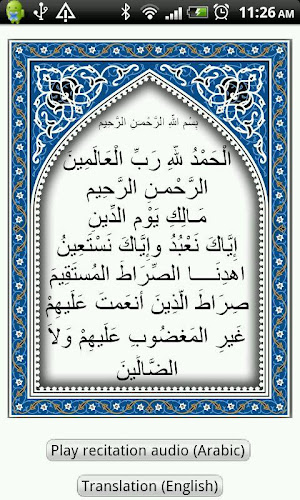 11:26 AM
بِسْمِ اللَّهِ الرَّحْمـنِ الرَّحِيمِ
الْحَمْدُ للّهِ رَبِّ الْعَالَمِينَ
الرَّحْمـنِ الرَّحِيمِ
مَـالِكِ يَوْمِ الدِّينِ
إِيَّاكَ نَعْبُدُ وإِيَّاكَ نَسْتَعِينُ
اهدِنَــــا الصِّرَاطَ المُستَقِيمَ
صِرَاطَ الَّذِينَ أَنعَمتَ عَلَيهِمْ
غَيرِ المَغضُوبِ عَلَيهِمْ وَلاَ
الضَّالِّينَ
Play recitation audio (Arabic)
Translation (English)